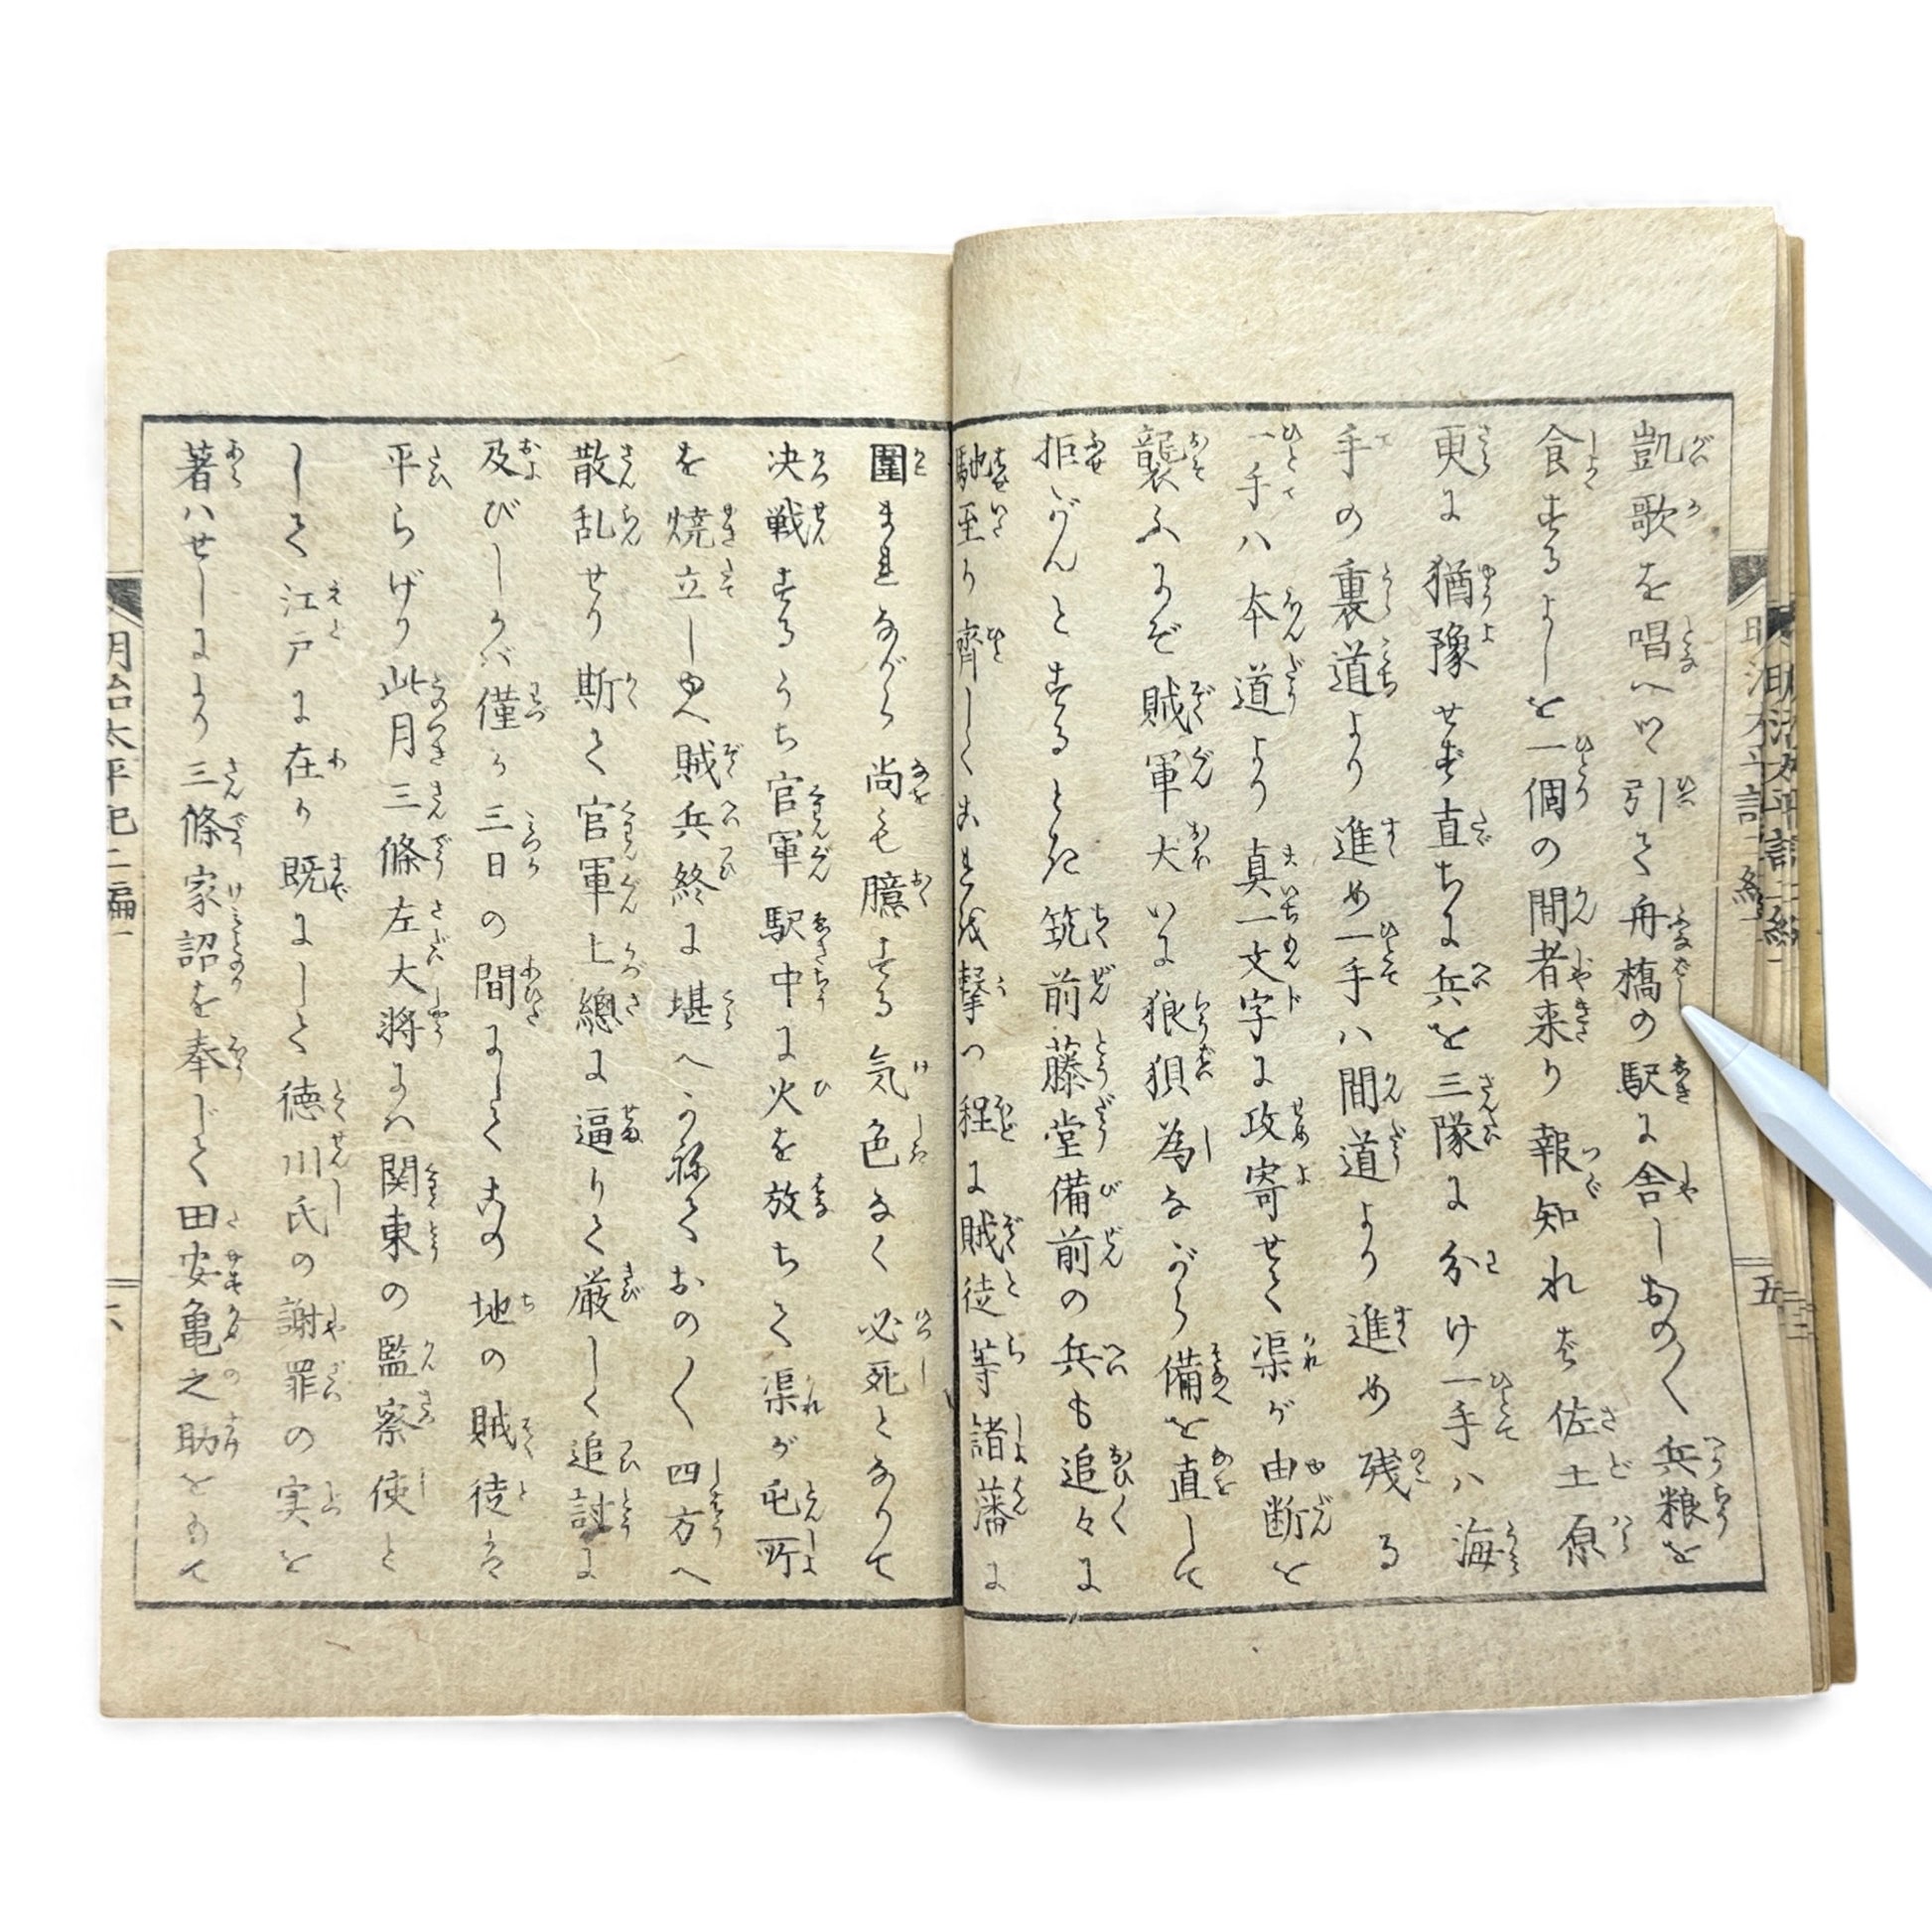 凱歌を唱へツヽ引て舟橋の駅に舎しおの〱兵粮を
食するよしを一個の間者来り報知れば佐土原
更に猶豫せず直ちに兵を三隊に分け一手ハ海
手の裏道より進め一手ハ間道より進め残る
一手ハ本道より真一文字に攻寄せて渠が由断を
襲ふにぞ賊軍大いに狼狽為ながら備を直して
拒がんとするとき筑前藤堂備前の兵も追々に
馳至り齊しくこれを撃つ程に賊徒等諸藩に
圍まれながら尚も臆する気色なく必死となりて
决戦するうち官軍駅中に火を放ちて渠が屯所
を焼立しゆへ賊兵終に堪へかねておの〱四方へ
散乱せり斯て官軍上總に逼りて厳しく追討に
及びしかバ僅か三日の間にしてこの地の賊徒を
平らげり此月三條左大将にハ関東の監察使と
して江戸に在り既にして徳川氏の謝罪の実を
著ハせしにより三條家詔を奉じて田安亀之助をもて
明治太平記二編一
五
六